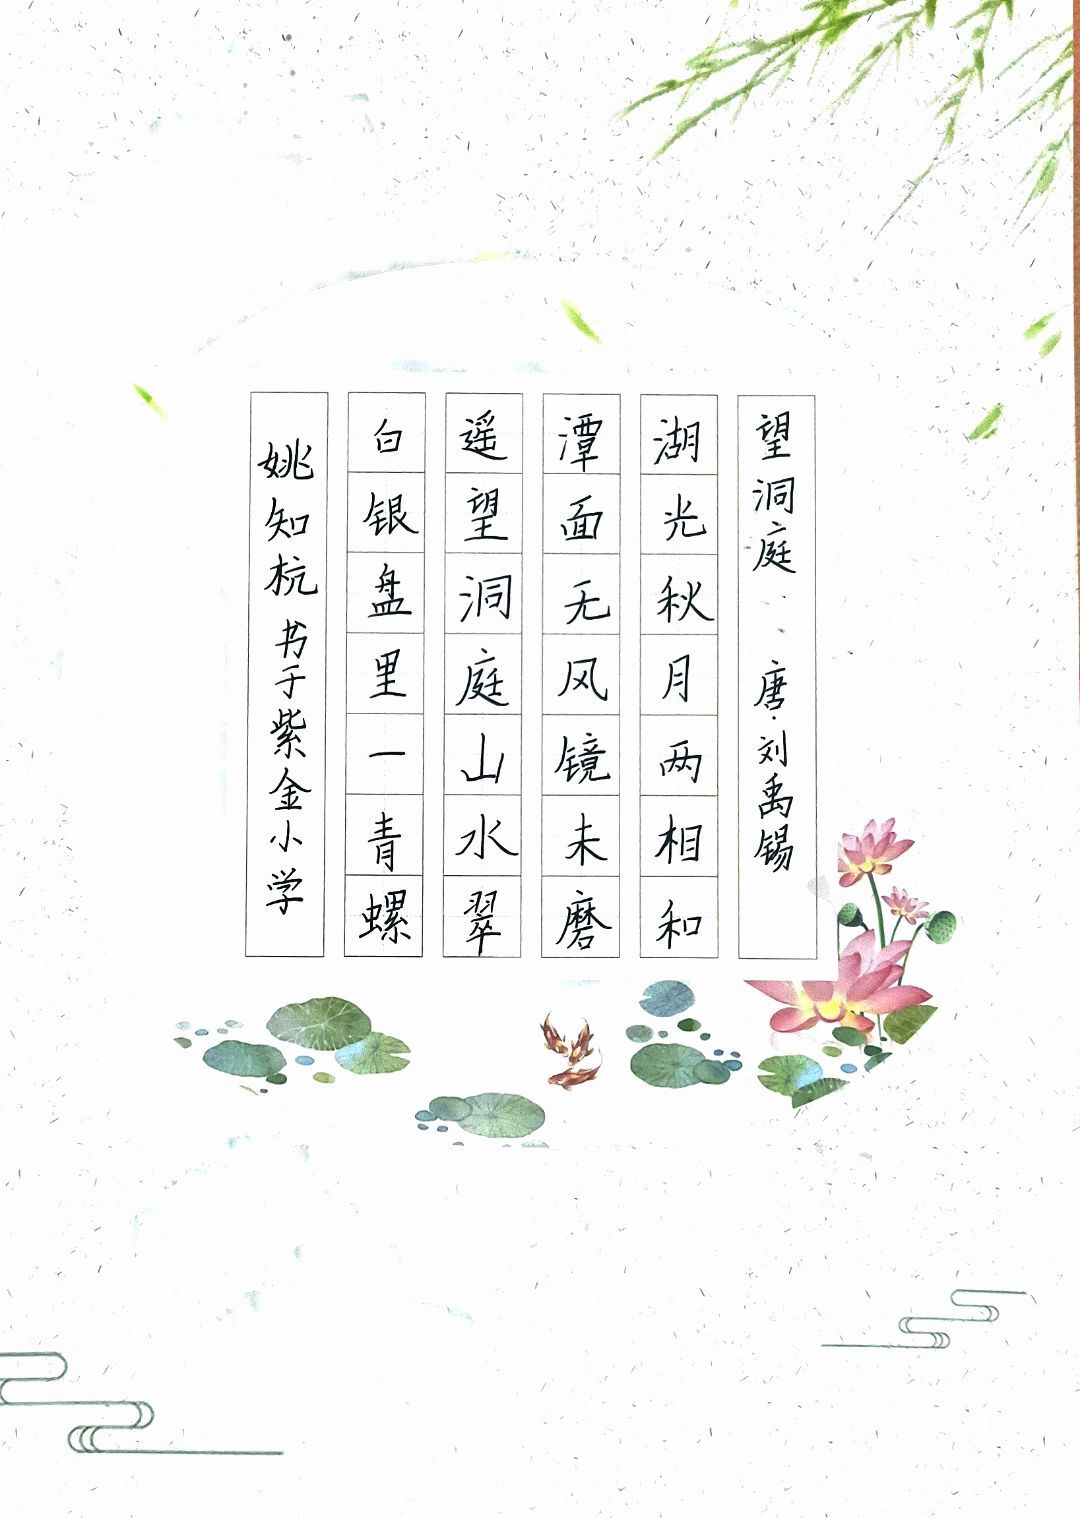 望洞庭 唐·刘禹锡
湖光秋月两相和
潭面无风镜未磨
遥望洞庭山水翠
白银盘里一青螺
姚知杭书于紫金小学